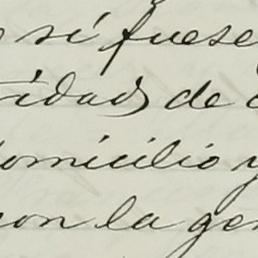 si fuese
idad de
omicilio y
con la gen